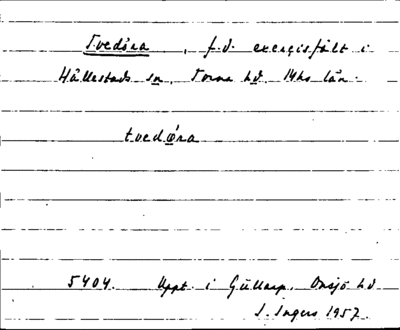 Tvedöra, f.d. exercisfält i
Hällestads sn, Torna hd. Mhs län.
tvedœ́ra
5404. Uppt. i Gullarp, Onsjö hd
I. Ingers 1957.